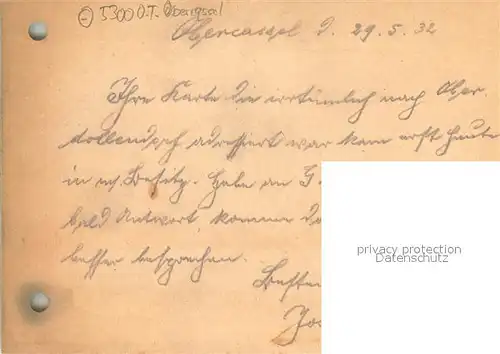 5300 O.T. Oberkassel
Obercassel d. 29.5.32
Ihre Karte die irrtümlich nach Ober-
dollendorf adressiert war kam erst heute
in m. Besitz. Habe an G
bald Antwort, komme da
besser besprechen.
Besten
Jos
privacy protection
Datenschutz